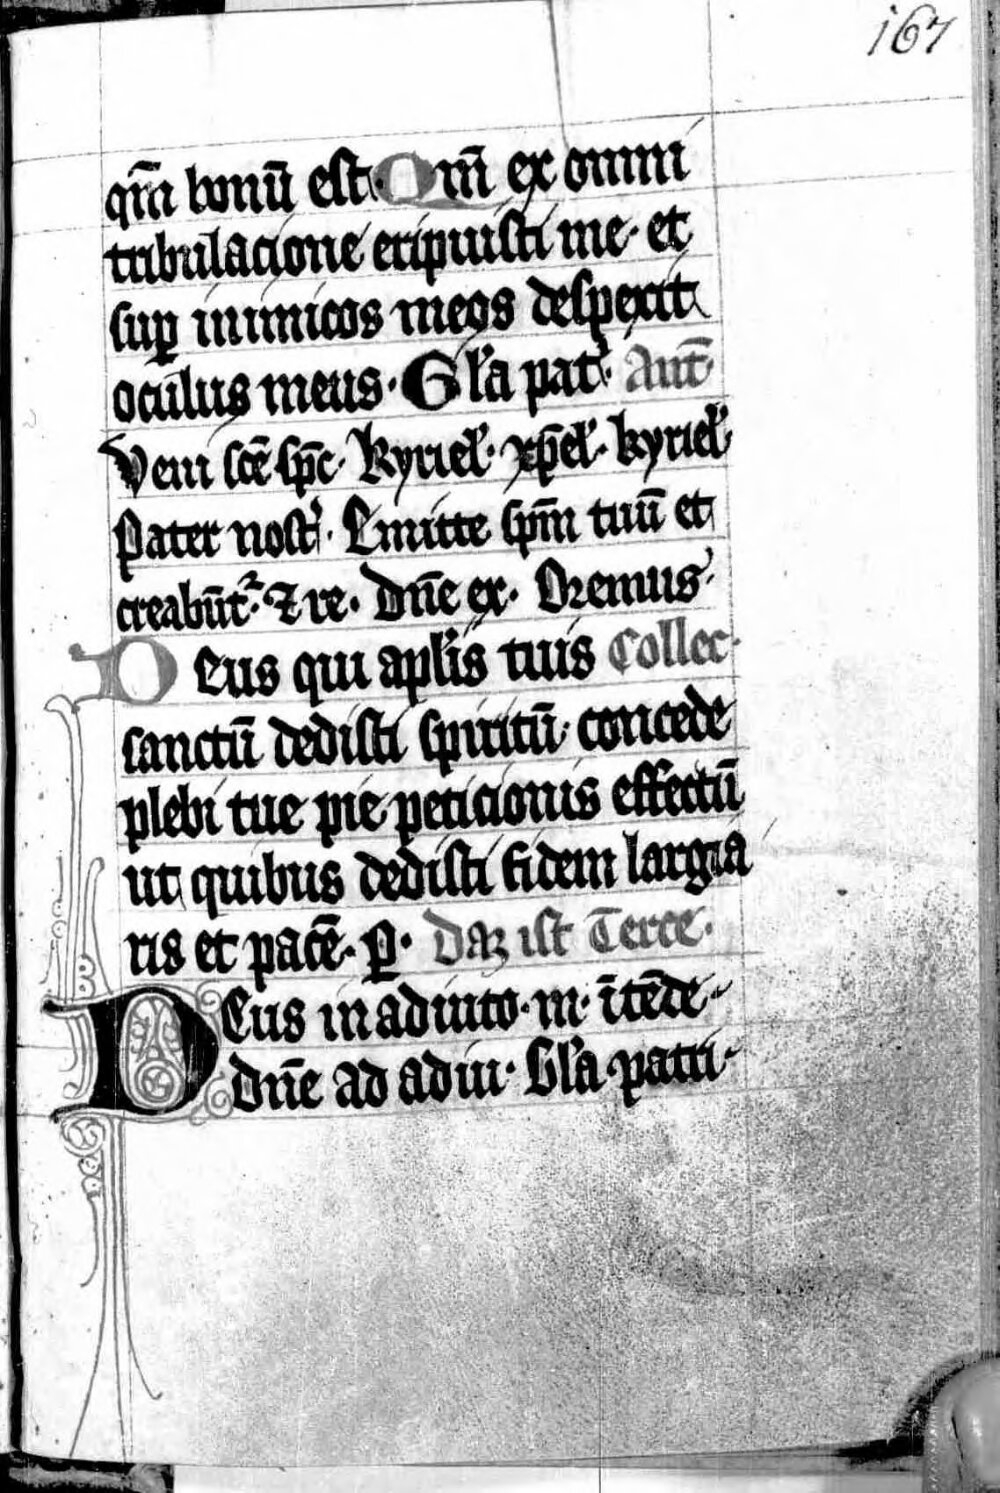 167
qm̄ bonū est. Qm̄ ex omni
tribulacione eripuisti me. et
suꝑ inimicos meos despexit
oculus meus. Gl'a pat'. Ant̄.
Veni sc̄e sp̄c. kyriel'. xp̄el'. kyriel'.
Pater nost'. Emitte sp̄m tuū et
creabūt᷑. ⁊ re. Dn̄e ex. Oremus.
Deus qui apl'is tuis Collec.
sanctū dedisti spiritū. concede
plebi tue pie peticionis effectū
ut quibus dedisti fidem largia
ris et pacē. ꝑ. Daz ist Terce.
Deus in adiuto. m. ītēde.
Dn̄e ad adiu. Gl'a patri.